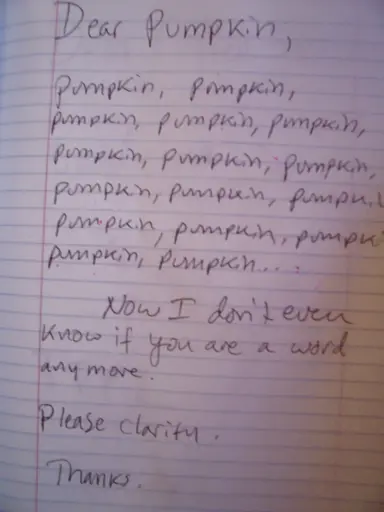 Dear Pumpkin,
pumpkin, pumpkin,
pumpkin, pumpkin, pumpkin,
pumpkin, pumpkin, pumpkin,
pumpkin, pumpkin, pumpki
pumpkin, pumpkin, pumpk
pumpkin, pumpkin....
Now I don't even
know if you are a word
any more.
Please clarify.
Thanks.